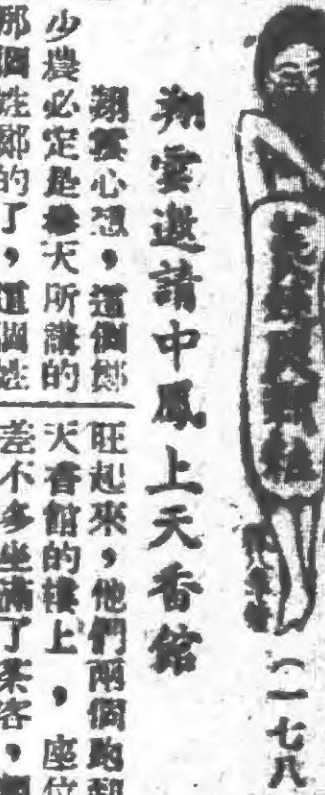 （一七八
翔雲邀請中鳳上天香館
翔雲心想，這個鄭
少農必定是天所講的
那個姓鄭的了，這個姓
旺起來，他們兩個跑到
天香館的樓上，座位
差不多坐滿了茶客，